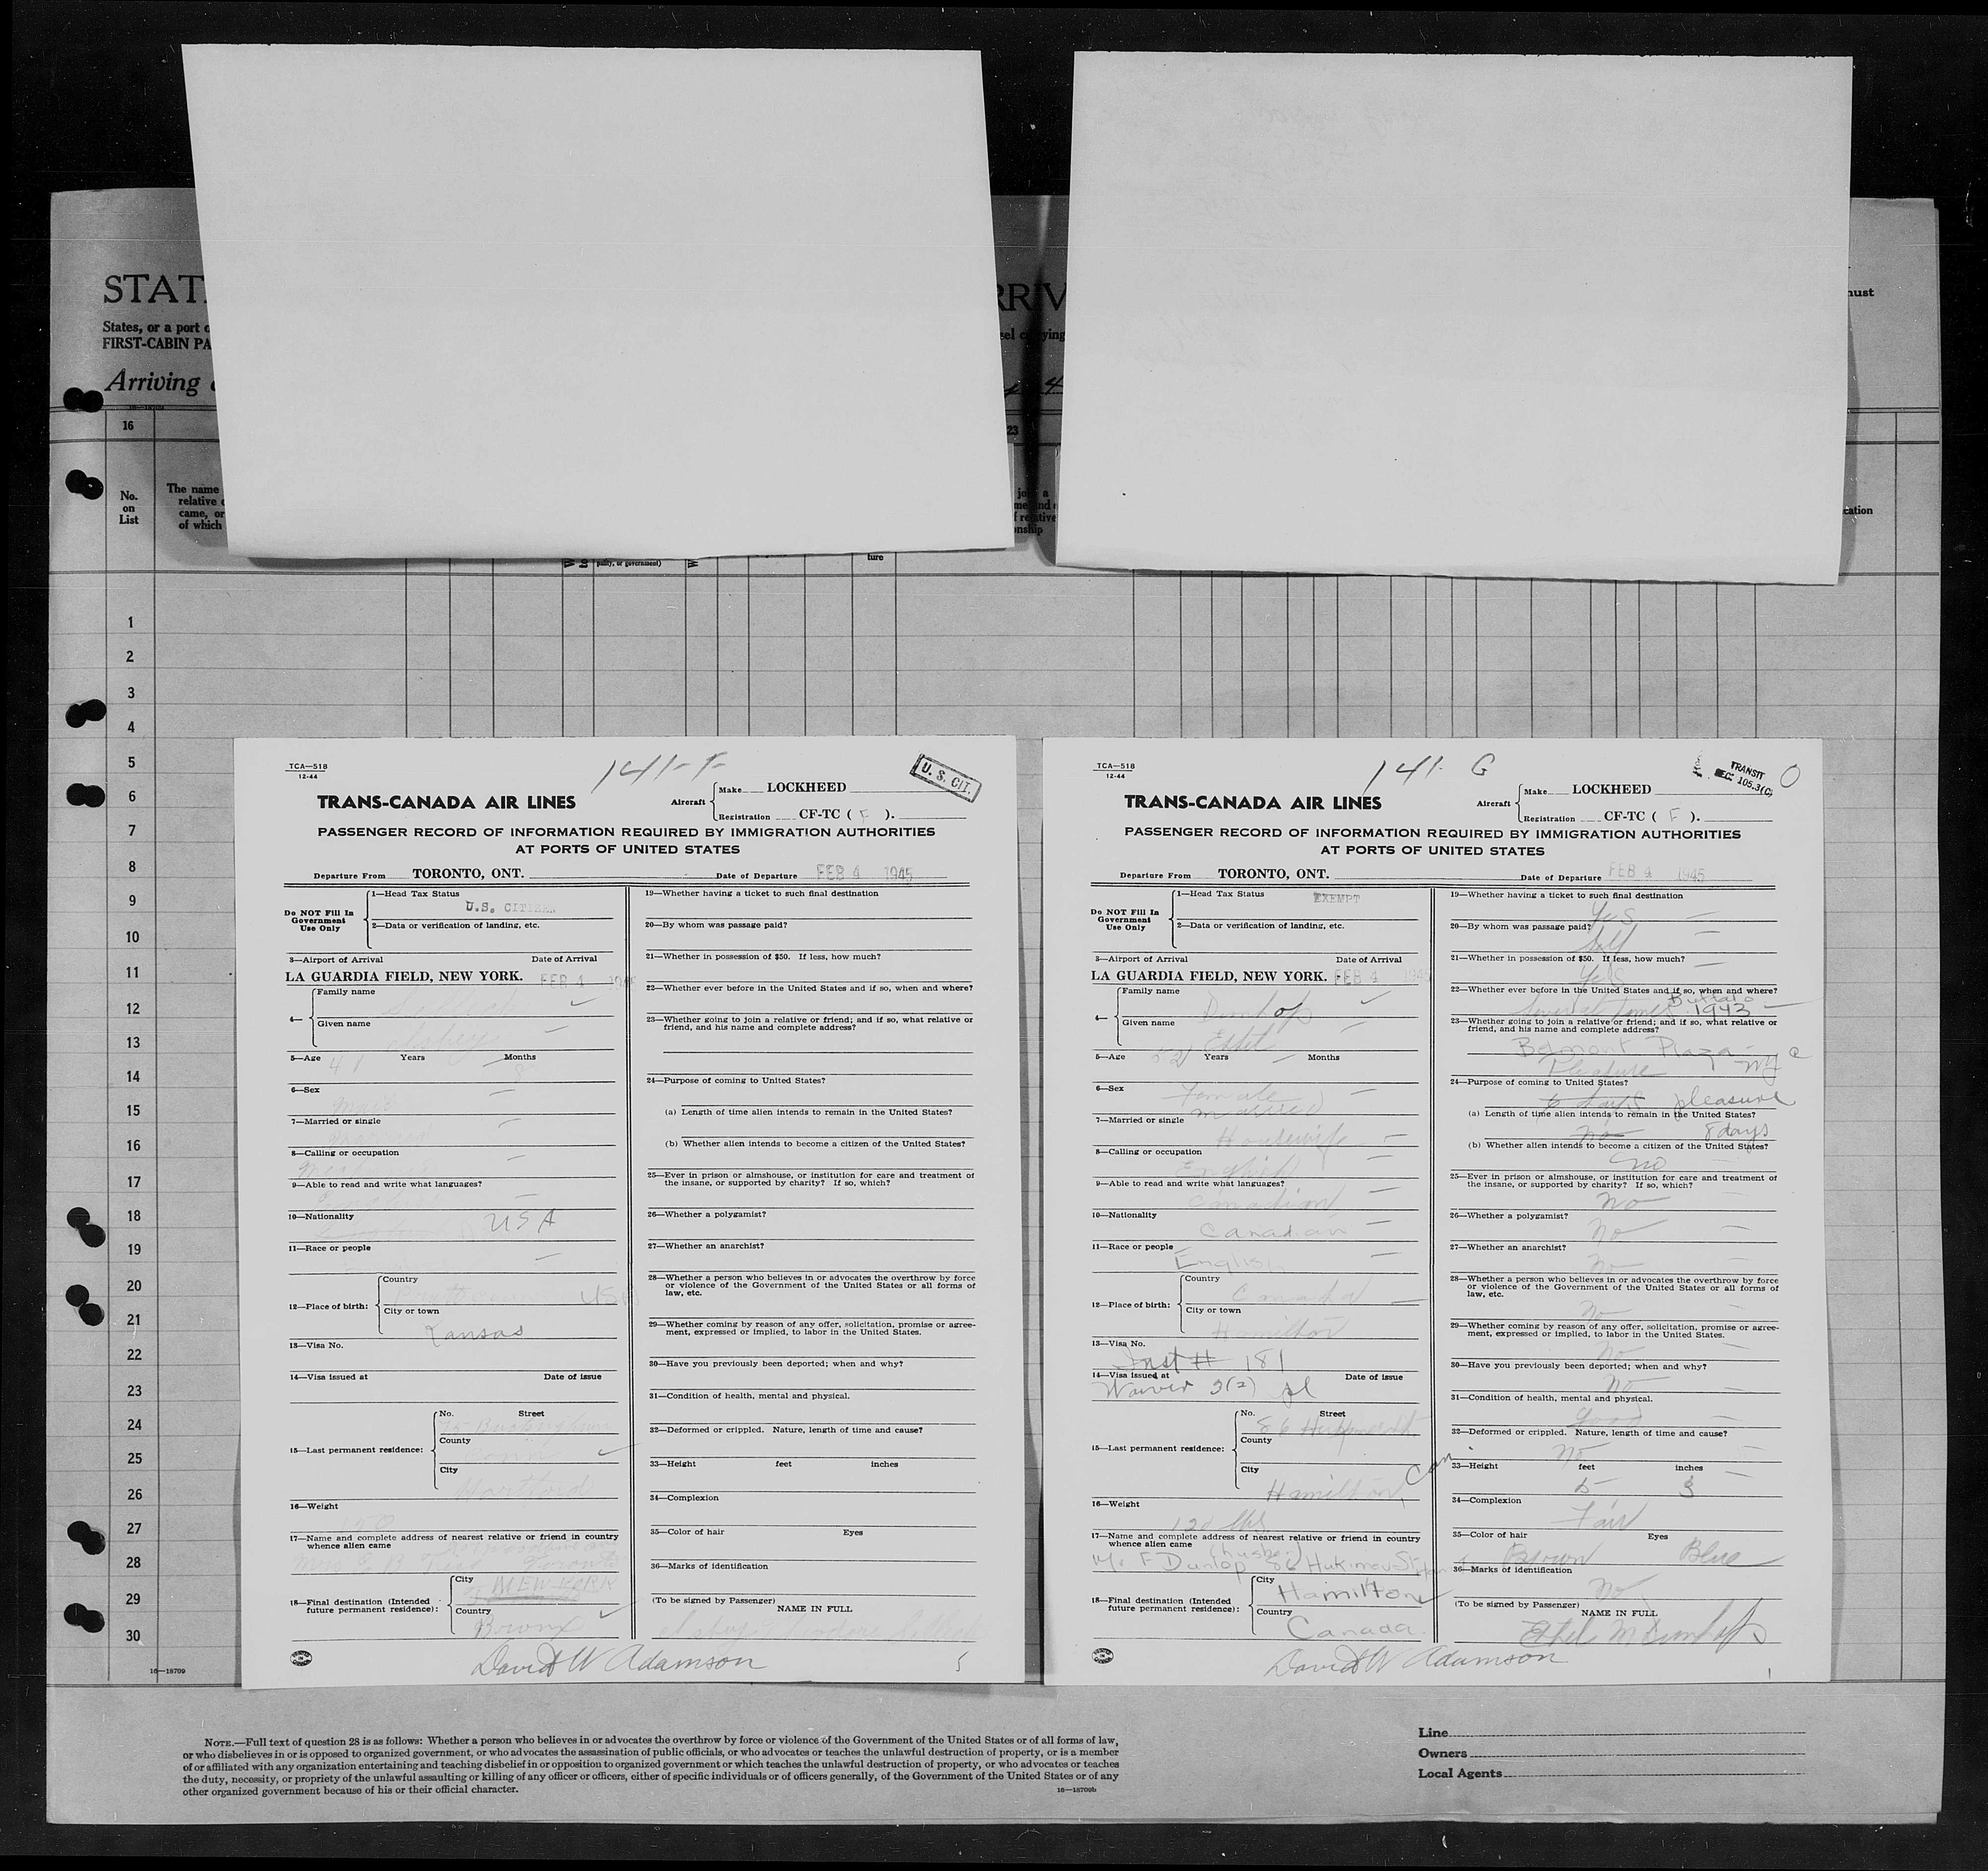 STAT
RRIV
must
States, or a port o
sel carrying
FIRST-CABIN PA
Arriving
16
23
No.
on
List
The name
relative
came, or
of which
cation
pality, or government)
ture
1
2
3
4
5
6
7
8
9
10
11
12
13
14
15
16
17
18
19
20
21
22
23
24
25
26
27
28
29
30
16—18709
TCA—518
12-44
141-F
U. S. CIT.
TRANS-CANADA AIR LINES
Aircraft
Make LOCKHEED
Registration CF-TC ( F ).
PASSENGER RECORD OF INFORMATION REQUIRED BY IMMIGRATION AUTHORITIES
AT PORTS OF UNITED STATES
Departure From TORONTO, ONT. Date of Departure FEB 4 1945
Do NOT Fill In
Government
Use Only
1—Head Tax Status
U.S. CITIZEN
2—Data or verification of landing, etc.
3—Airport of Arrival Date of Arrival
LA GUARDIA FIELD, NEW YORK. FEB 4 1945
4—
Family name
Given name
5—Age 41 Years 8 Months
6—Sex
Male
7—Married or single
8—Calling or occupation
9—Able to read and write what languages?
10—Nationality USA
11—Race or people
12—Place of birth:
Country
USA
City or town
Kansas
13—Visa No.
14—Visa issued at Date of issue
15—Last permanent residence:
No. Street
County
City
Hartford
16—Weight
17—Name and complete address of nearest relative or friend in country
whence alien came
Toronto
18—Final destination (Intended
future permanent residence):
City
NEW YORK
Country
19—Whether having a ticket to such final destination
20—By whom was passage paid?
21—Whether in possession of $50. If less, how much?
22—Whether ever before in the United States and if so, when and where?
23—Whether going to join a relative or friend; and if so, what relative or
friend, and his name and complete address?
24—Purpose of coming to United States?
(a) Length of time alien intends to remain in the United States?
(b) Whether alien intends to become a citizen of the United States?
25—Ever in prison or almshouse, or institution for care and treatment of
the insane, or supported by charity? If so, which?
26—Whether a polygamist?
27—Whether an anarchist?
28—Whether a person who believes in or advocates the overthrow by force
or violence of the Government of the United States or all forms of
law, etc.
29—Whether coming by reason of any offer, solicitation, promise or agree-
ment, expressed or implied, to labor in the United States.
30—Have you previously been deported; when and why?
31—Condition of health, mental and physical.
32—Deformed or crippled. Nature, length of time and cause?
33—Height feet inches
34—Complexion
35—Color of hair Eyes
36—Marks of identification
(To be signed by Passenger)
NAME IN FULL
David W Adamson
5
TCA—518
12-44
141- G
TRANSIT
SEC. 105.3(C)
TRANS-CANADA AIR LINES
Aircraft
Make LOCKHEED
Registration CF-TC ( F ).
PASSENGER RECORD OF INFORMATION REQUIRED BY IMMIGRATION AUTHORITIES
AT PORTS OF UNITED STATES
Departure From TORONTO, ONT. Date of Departure FEB 4 1945
Do NOT Fill In
Government
Use Only
1—Head Tax Status
EXEMPT
2—Data or verification of landing, etc.
3—Airport of Arrival Date of Arrival
LA GUARDIA FIELD, NEW YORK. FEB 4 1945
4—
Family name
Dunlop
Given name
Ethel
5—Age 52 Years Months
6—Sex
Female
married
7—Married or single
Housewife
8—Calling or occupation
English
9—Able to read and write what languages?
Canadian
10—Nationality
Canadian
11—Race or people
English
12—Place of birth:
Country
Canada
City or town
Hamilton
13—Visa No.
Inst # 181
14—Visa issued at Date of issue
Waiver 3(2)
15—Last permanent residence:
No. Street
86
County
City
Hamilton, Can.
16—Weight
120 lbs
17—Name and complete address of nearest relative or friend in country
whence alien came (husban)
Mr F Dunlop 86
18—Final destination (Intended
future permanent residence):
City
Hamilton
Country
Canada
19—Whether having a ticket to such final destination
Yes
20—By whom was passage paid?
Self
21—Whether in possession of $50. If less, how much?
Yes
22—Whether ever before in the United States and if so, when and where?
Buffalo
Several times 1943
23—Whether going to join a relative or friend; and if so, what relative or
friend, and his name and complete address?
Belmont Plaza NY C
Pleasure
24—Purpose of coming to United States?
pleasure
(a) Length of time alien intends to remain in the United States?
no 8 days
(b) Whether alien intends to become a citizen of the United States?
no
25—Ever in prison or almshouse, or institution for care and treatment of
the insane, or supported by charity? If so, which?
No
26—Whether a polygamist?
No
27—Whether an anarchist?
No
28—Whether a person who believes in or advocates the overthrow by force
or violence of the Government of the United States or all forms of
law, etc.
No
29—Whether coming by reason of any offer, solicitation, promise or agree-
ment, expressed or implied, to labor in the United States.
No
30—Have you previously been deported; when and why?
No
31—Condition of health, mental and physical.
Good
32—Deformed or crippled. Nature, length of time and cause?
No
33—Height feet inches
5 3
34—Complexion
Fair
35—Color of hair Eyes
Brown Blue
36—Marks of identification
No
(To be signed by Passenger)
NAME IN FULL
Ethel M Dunlop
David W Adamson
1
NOTE.—Full text of question 28 is as follows: Whether a person who believes in or advocates the overthrow by force or violence of the Government of the United States or of all forms of law,
or who disbelieves in or is opposed to organized government, or who advocates the assassination of public officials, or who advocates or teaches the unlawful destruction of property, or is a member
of or affiliated with any organization entertaining and teaching disbelief in or opposition to organized government or which teaches the unlawful destruction of property, or who advocates or teaches
the duty, necessity, or propriety of the unlawful assaulting or killing of any officer or officers, either of specific individuals or of officers generally, of the Government of the United States or of any
other organized government because of his or their official character.
16—18709b
Line
Owners
Local Agents